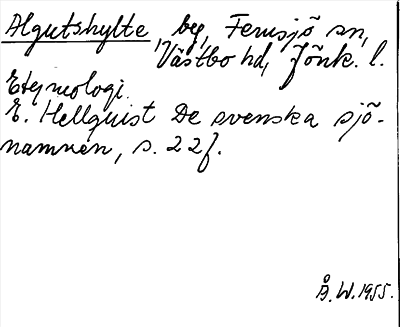 Algutshylte, by, Femsjö sn,
Västbo hd, Jönk. l.
Etymologi.
E. Hellquist De svenska sjö-
namnen, s. 22 f.
Å. W. 1955.